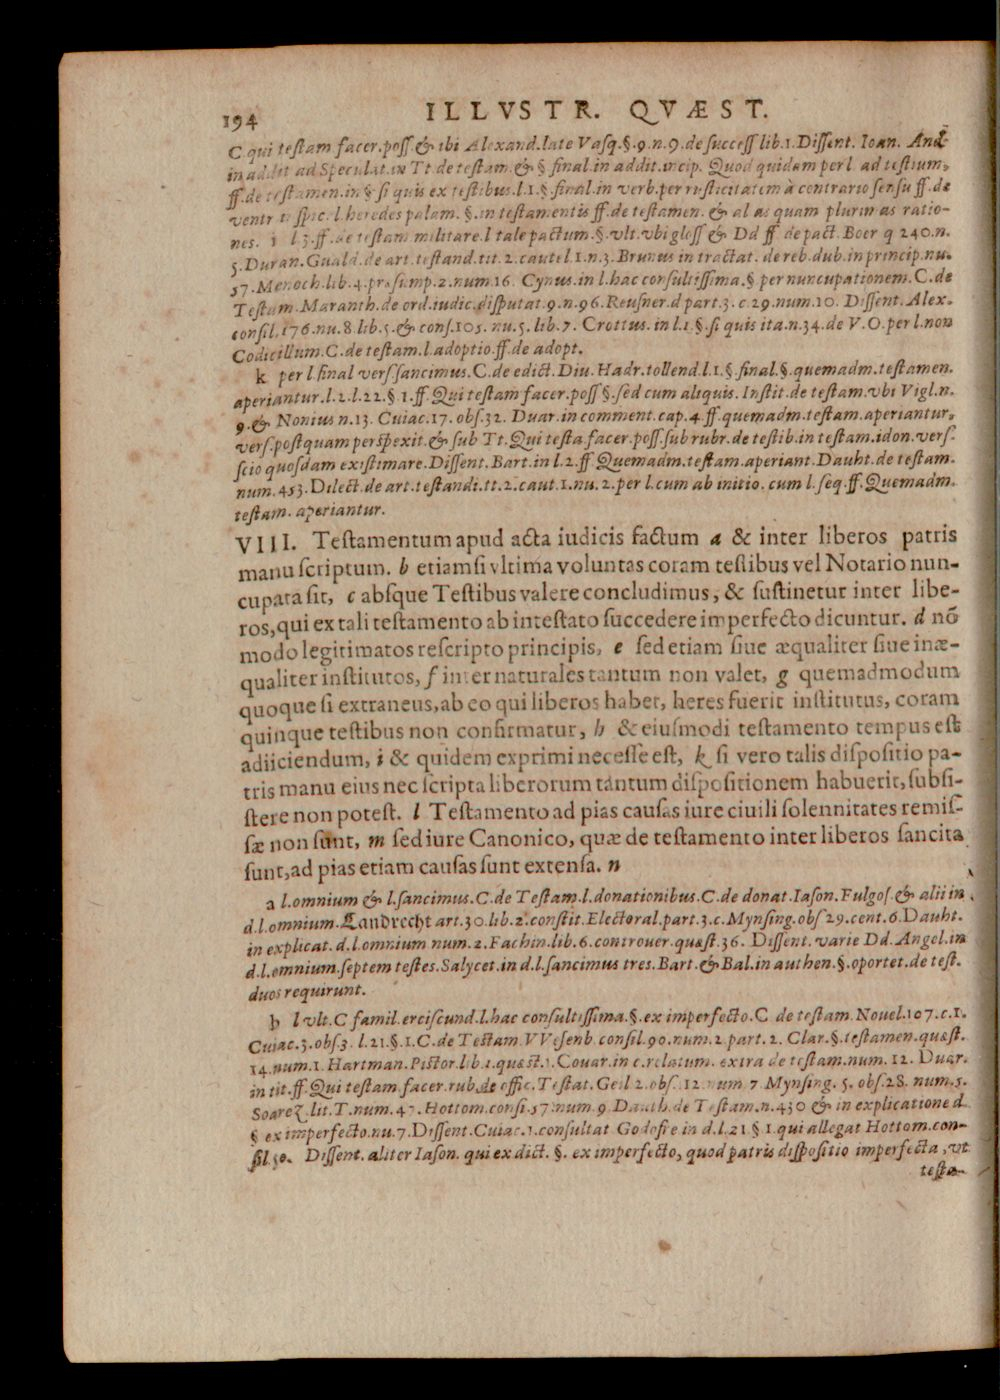 194 ILLVSTR. QVÆST.
C. qui testam facer. poss. & ibi Alexand. late Vasq. §. 9. n. 9. de success lib. 1. Dissent. Ioan. And.
in addit ad Speculat. in Tt. de testam. & § final. in addit. incip. Quod quidem per l. ad testium.
ff. de testamen. in § si quis ex testibus. l. 1. §. final. in verb. per rusticitatem à contrario sensu ff. de
ventr. l. heredes palam. §. in testamentis ff. de testamen. & al as quam plurimas ratio-
nes. i l. 3. ff. de testam. militare. l tale pactum. §. vlt. vbi gloss & Dd ff. de pact. Boer q 240. n.
5. Duran. Guald. de art. testand. tit. 2. cautel 1. n. 3. Brunus in tractat. de reb. dub. in princip. nu.
57. Menoch. lib. 4. præsump. 2. num. 16. Cynus. in l. hac consultissima. § per nuncupationem. C. de
Testam. Maranth. de ord. iudic. disputat. 9. n. 96. Reusner. d part. 3. c. 29. num. 10. Dissent. Alex.
consil. 176. nu. 8. lib. 5. & cons. 105. nu. 5. lib. 7. Crottus. in l. 1. §. si quis ita. n. 34. de V. O. per l. non
Codicillum. C. de testam. l. adoptio. ff. de adopt.
k per l. final vers. sancimus. C. de edict. Diu. Hadr. tollend. l. 1. §. final. §. quemadm. testamen.
aperiantur. l. 2. l. 22. § 1. ff. Qui testam facer. poss § sed cum aliquis. Instit. de testam. vbi Vigl. n.
9. & Nonius n. 13. Cuiac. 17. obs. 32. Duar. in comment. cap. 4. ff. quemadm. testam. aperiantur.
vers. postquam perspexit. & sub Tt. Qui testa. facer. poss. sub rubr. de testib. in testam. idon. vers.
scio quosdam existimare. Dissent. Bart. in l. 2. ff. Quemadm. testam. aperiant. Dauht. de testam.
num. 453. Dilect. de art. testandi. tt. 2. caut. 1. nu. 2. per l. cum ab initio. cum l. seq. ff. Quemadm.
testam. aperiantur.
VIII. Testamentum apud acta iudicis factum a & inter liberos patris
manu scriptum. b etiamsi vltima voluntas coram testibus vel Notario nun-
cupata sit, c absque Testibus valere concludimus, & sustinetur inter libe-
ros, qui ex tali testamento ab intestato succedere imperfecto dicuntur. d nõ
modo legitimatos rescripto principis, e sed etiam siue æqualiter siue inæ-
qualiter institutos, f inter naturales tantum non valet, g quemadmodum
quoque si extraneus, ab eo qui liberos habet, heres fuerit institutus, coram
quinque testibus non confirmatur, h & eiusmodi testamento tempus est
adiiciendum, i & quidem exprimi necesse est, k si vero talis dispositio pa-
tris manu eius nec scripta liberorum tantum dispositionem habuerit, subsi-
stere non potest. l Testamento ad pias causas iure ciuili solennitates remis-
sæ non sunt, m sed iure Canonico, quæ de testamento inter liberos sancita
sunt, ad pias etiam causas sunt extensa. n
a l. omnium & l. sancimus. C. de Testam. l. donationibus. C. de donat. Iason. Fulgos. & alii in
d. l. omnium. Landrecht art. 30. lib. 2. constit. Electoral. part. 3. c. Mynsing. obs 29. cent. 6. Dauht.
in explicat. d. l. omnium num. 2. Fachin. lib. 6. controuer. quæst. 36. Dissent. varie Dd. Angel. in
d. l. omnium. septem testes. Salycet. in d. l. sancimus tres. Bart. & Bal. in authen. §. oportet. de test.
duos requirunt.
b l vlt. C famil. erciscund. l. hac consultissima. §. ex imperfecto. C de testam. Nouel. 107. c. 1.
Cuiac. 3. obs. 3. l. 21. §. 1. C. de Testam. VVesenb consil. 90. num. 2. part. 2. Clar. §. testamen. quæst.
14. num. 1. Hartman. Pistor. lib. 1. quæst. 1. Couar. in c. relatum. extra de testam. num. 12. Duar.
in tit. ff. Qui testam facer. rub. de offic. Testat. Geil 2. obs. 12. num. 7. Mynsing. 5. obs. 28. num. 5.
Soarez lit. T. num. 47. Hottom. consi. 57. num. 9. Dauth. de Testam. n. 430 & in explicatione d.
§ ex imperfecto. nu. 7. Dissent. Cuiac. 1. consultat Godofre in d. l. 21 § 1. qui allegat Hottom. con-
sil. Dissent. aliter Iason. qui ex dict. §. ex imperfecto, quod patris dispositio imperfecta, vt
testa-